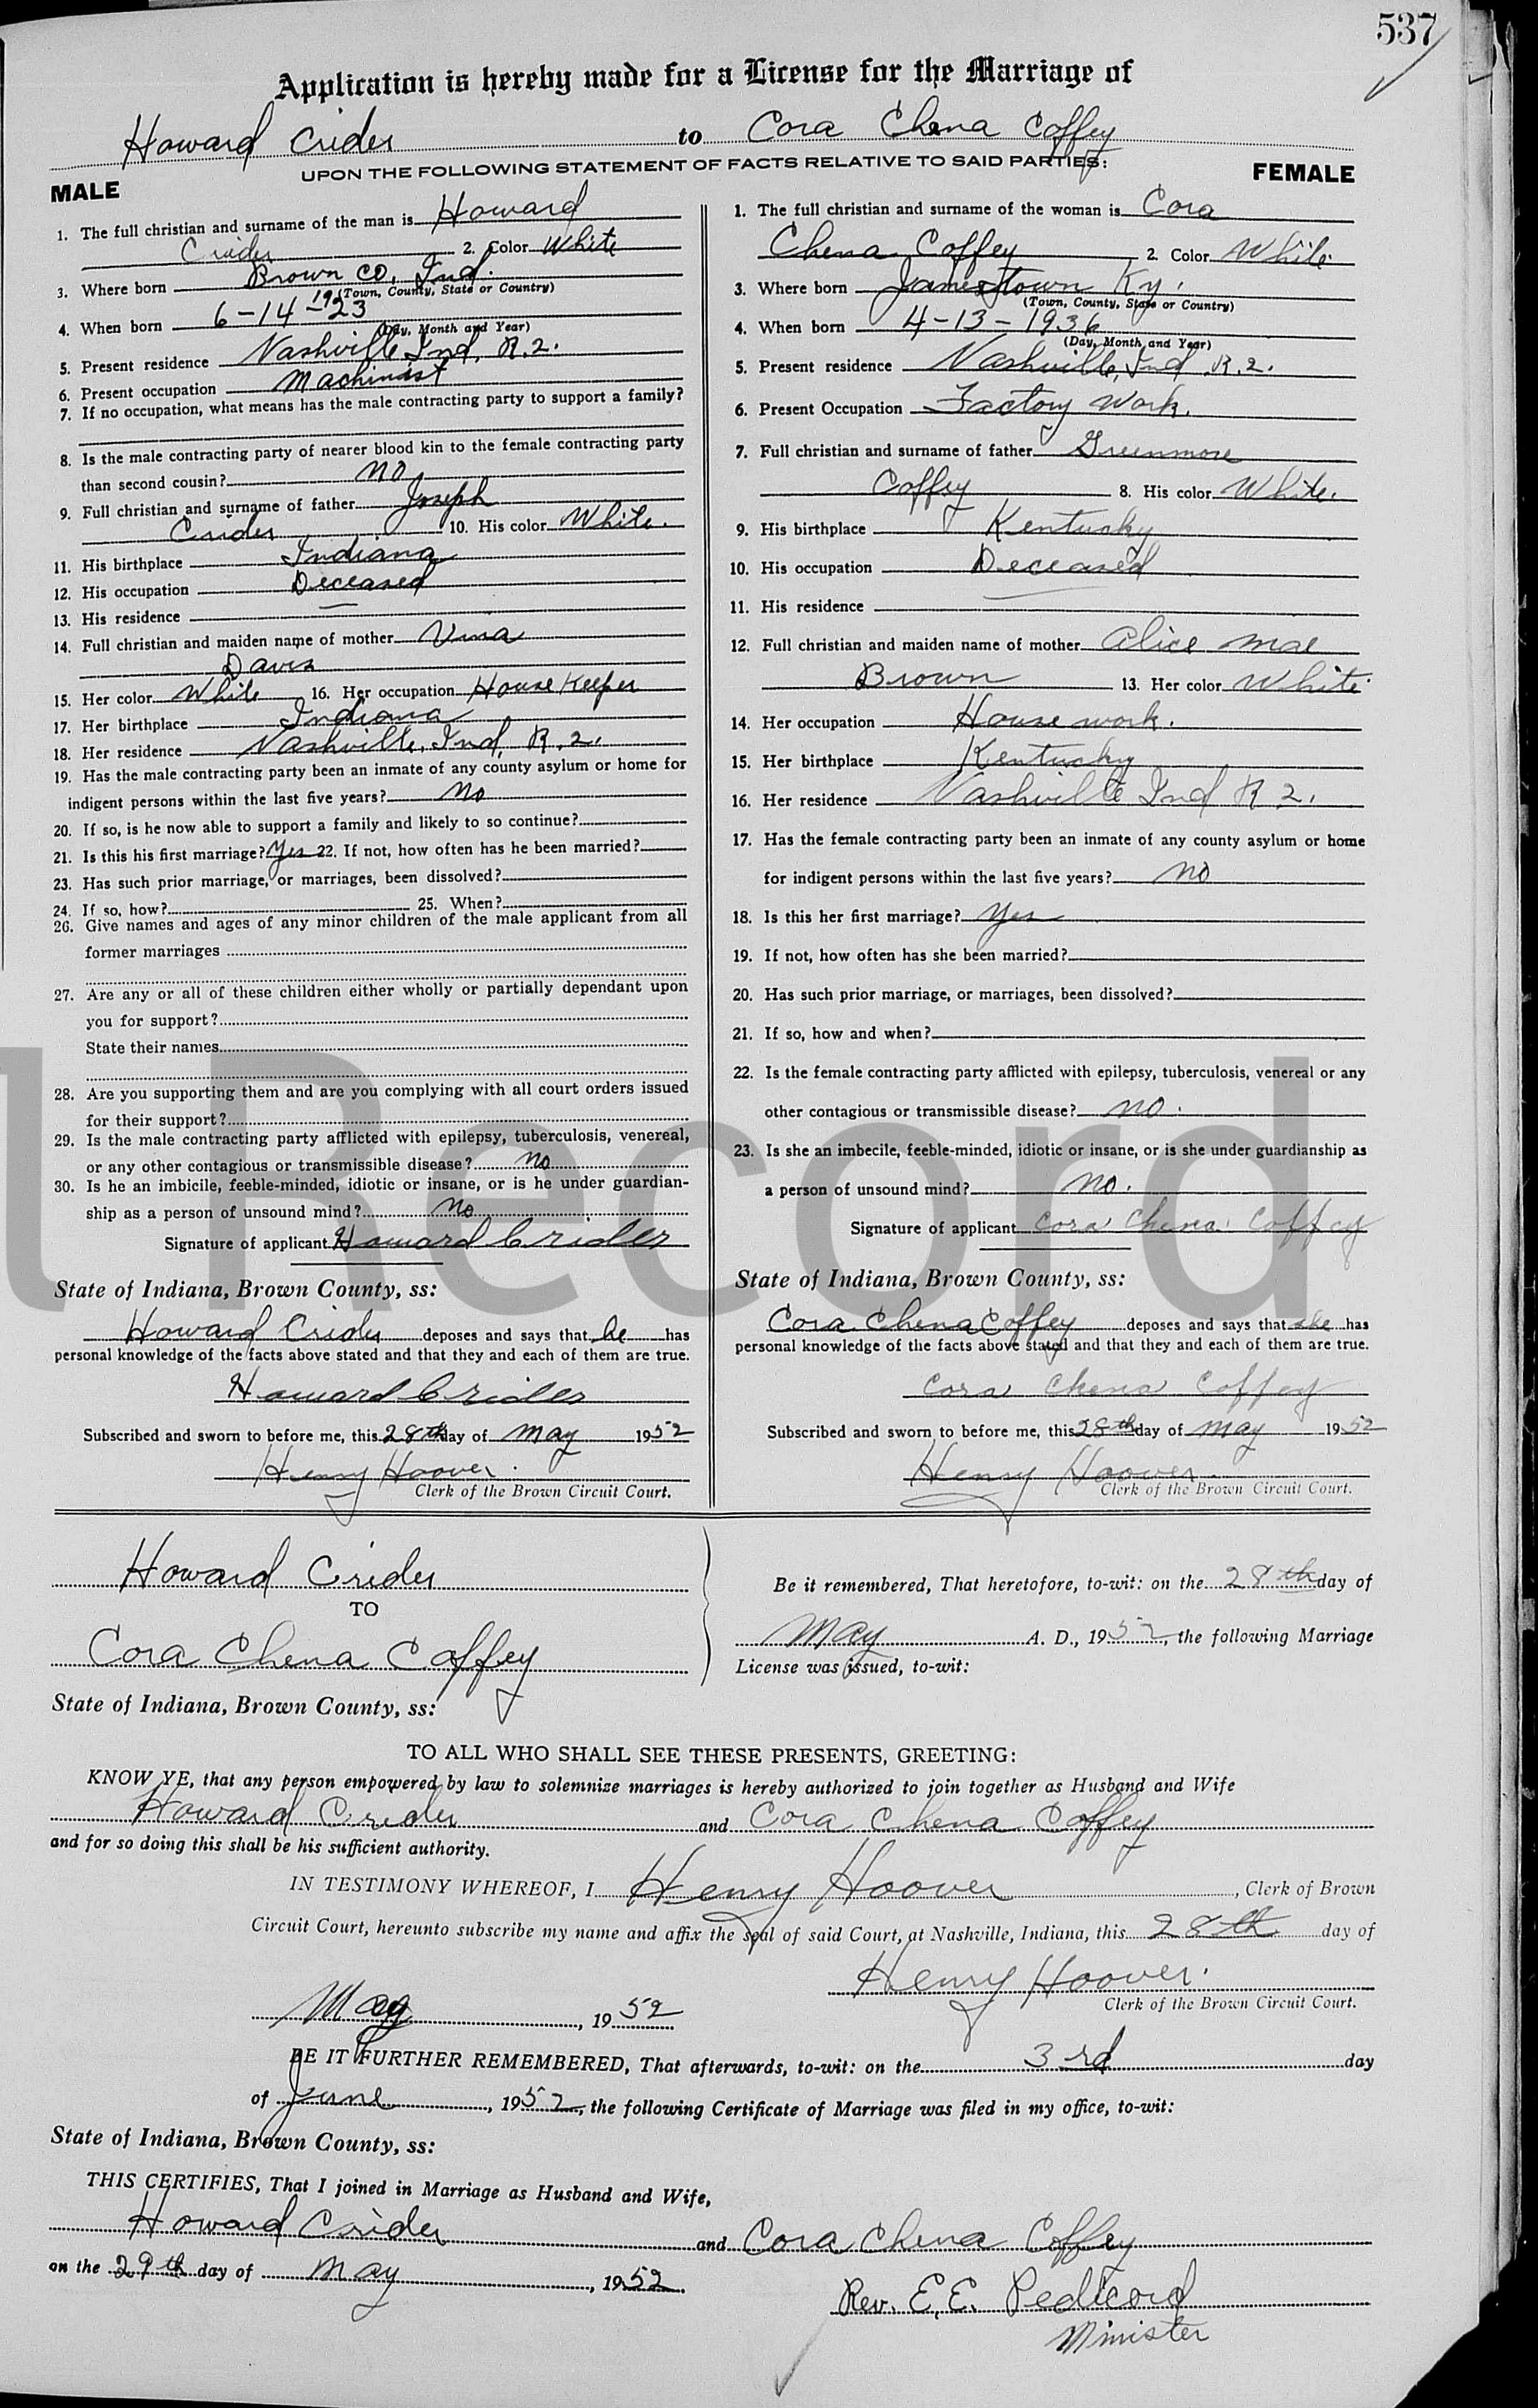 537
Application is hereby made for a License for the Marriage of
Howard Crider to Cora Chena Coffey
UPON THE FOLLOWING STATEMENT OF FACTS RELATIVE TO SAID PARTIES:
MALE
1. The full christian and surname of the man is Howard
Crider 2. Color White
3. Where born Brown Co, Ind.
(Town, County, State or Country)
4. When born 6-14-23 1923
(Day, Month and Year)
5. Present residence Nashville, Ind, R.2.
6. Present occupation Machinist
7. If no occupation, what means has the male contracting party to support a family?
8. Is the male contracting party of nearer blood kin to the female contracting party
than second cousin? no
9. Full christian and surname of father Joseph
Crider 10. His color White.
11. His birthplace Indiana
12. His occupation Deceased
13. His residence
14. Full christian and maiden name of mother Vina
Davis
15. Her color White 16. Her occupation House Keeper
17. Her birthplace Indiana
18. Her residence Nashville, Ind, R.2.
19. Has the male contracting party been an inmate of any county asylum or home for
indigent persons within the last five years? No
20. If so, is he now able to support a family and likely to so continue?
21. Is this his first marriage? Yes 22. If not, how often has he been married?
23. Has such prior marriage, or marriages, been dissolved?
24. If so, how? 25. When?
26. Give names and ages of any minor children of the male applicant from all
former marriages
27. Are any or all of these children either wholly or partially dependant upon
you for support?
State their names
28. Are you supporting them and are you complying with all court orders issued
for their support?
29. Is the male contracting party afflicted with epilepsy, tuberculosis, venereal,
or any other contagious or transmissible disease? No
30. Is he an imbicile, feeble-minded, idiotic or insane, or is he under guardian-
ship as a person of unsound mind? No
Signature of applicant Howard Crider
State of Indiana, Brown County, ss:
Howard Crider deposes and says that he has
personal knowledge of the facts above stated and that they and each of them are true.
Howard Crider
Subscribed and sworn to before me, this 28th day of May 1952
Henry Hoover.
Clerk of the Brown Circuit Court.
FEMALE
1. The full christian and surname of the woman is Cora
Chena Coffey 2. Color White.
3. Where born Jamestown Ky.
(Town, County, State or Country)
4. When born 4-13-1936
(Day, Month and Year)
5. Present residence Nashville, Ind. R.2.
6. Present Occupation Factory Work.
7. Full christian and surname of father Greenmore
Coffey 8. His color White.
9. His birthplace Kentucky
10. His occupation Deceased
11. His residence
12. Full christian and maiden name of mother Alice Mae
Brown 13. Her color White
14. Her occupation House work.
15. Her birthplace Kentucky
16. Her residence Nashville Ind R 2.
17. Has the female contracting party been an inmate of any county asylum or home
for indigent persons within the last five years? No
18. Is this her first marriage? Yes
19. If not, how often has she been married?
20. Has such prior marriage, or marriages, been dissolved?
21. If so, how and when?
22. Is the female contracting party afflicted with epilepsy, tuberculosis, venereal or any
other contagious or transmissible disease? no.
23. Is she an imbecile, feeble-minded, idiotic or insane, or is she under guardianship as
a person of unsound mind? no.
Signature of applicant Cora Chena Coffey
State of Indiana, Brown County, ss:
Cora Chena Coffey deposes and says that she has
personal knowledge of the facts above stated and that they and each of them are true.
Cora Chena Coffey
Subscribed and sworn to before me, this 28th day of May 1952
Henry Hoover.
Clerk of the Brown Circuit Court.
l Record
Howard Crider
TO
Cora Chena Coffey
State of Indiana, Brown County, ss:
Be it remembered, That heretofore, to-wit: on the 28th day of
May A. D., 1952, the following Marriage
License was issued, to-wit:
TO ALL WHO SHALL SEE THESE PRESENTS, GREETING:
KNOW YE, that any person empowered by law to solemnize marriages is hereby authorized to join together as Husband and Wife
Howard Crider and Cora Chena Coffey
and for so doing this shall be his sufficient authority.
IN TESTIMONY WHEREOF, I Henry Hoover, Clerk of Brown
Circuit Court, hereunto subscribe my name and affix the seal of said Court, at Nashville, Indiana, this 28th day of
May, 1952
Henry Hoover.
Clerk of the Brown Circuit Court.
BE IT FURTHER REMEMBERED, That afterwards, to-wit: on the 3rd day
of June, 1952, the following Certificate of Marriage was filed in my office, to-wit:
State of Indiana, Brown County, ss:
THIS CERTIFIES, That I joined in Marriage as Husband and Wife,
Howard Crider and Cora Chena Coffey
on the 29th day of May, 1952.
Rev. E. E. Pedicord
Minister